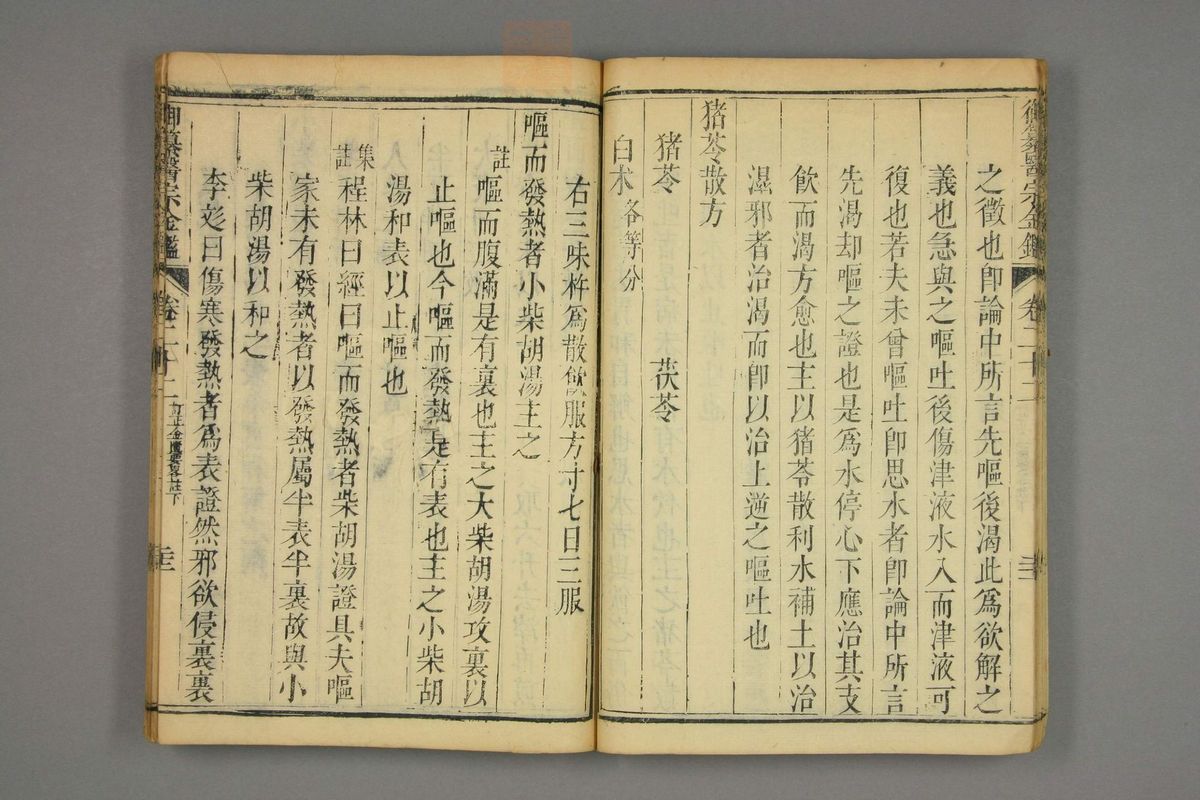 御纂醫宗金鑑 卷二十二
之徵也卽論中所言先嘔後渴此爲欲解之
義也急與之嘔吐後傷津液水入而津液可
復也若夫未曾嘔吐卽思水者卽論中所言
先渴却嘔之證也是爲水停心下應治其支
飲而渴方愈也主以猪苓散利水補土以治
濕邪者治渴而卽以治上逆之嘔吐也
猪苓散方
猪苓 茯苓
白朮各等分
右三味杵爲散飲服方寸七日三服
嘔而發熱者小柴胡湯主之
註嘔而腹滿是有裏也主之大柴胡湯攻裏以
止嘔也今嘔而發熱是有表也主之小柴胡
湯和表以止嘔也
集註程林曰經曰嘔而發熱者柴胡湯證具夫嘔
家未有發熱者以發熱屬半表半裏故與小
柴胡湯以和之
李彣曰傷寒發熱者爲表證然邪欲侵裏裏
御纂醫宗金鑑 卷二十二 訂正金匱要畧註下